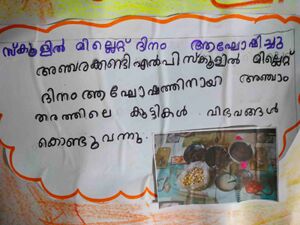 സ്കൂളിൽ മില്ലെറ്റ് ദിനം ആഘോഷിച്ചു
അഞ്ചരക്കണ്ടി എൽ പി സ്കൂളിൽ മില്ലെറ്റ്
ദിനം ആഘോഷത്തിനായി അഞ്ചാം
തരത്തിലെ കുട്ടികൾ വിഭവങ്ങൾ
കൊണ്ടുവന്നു.